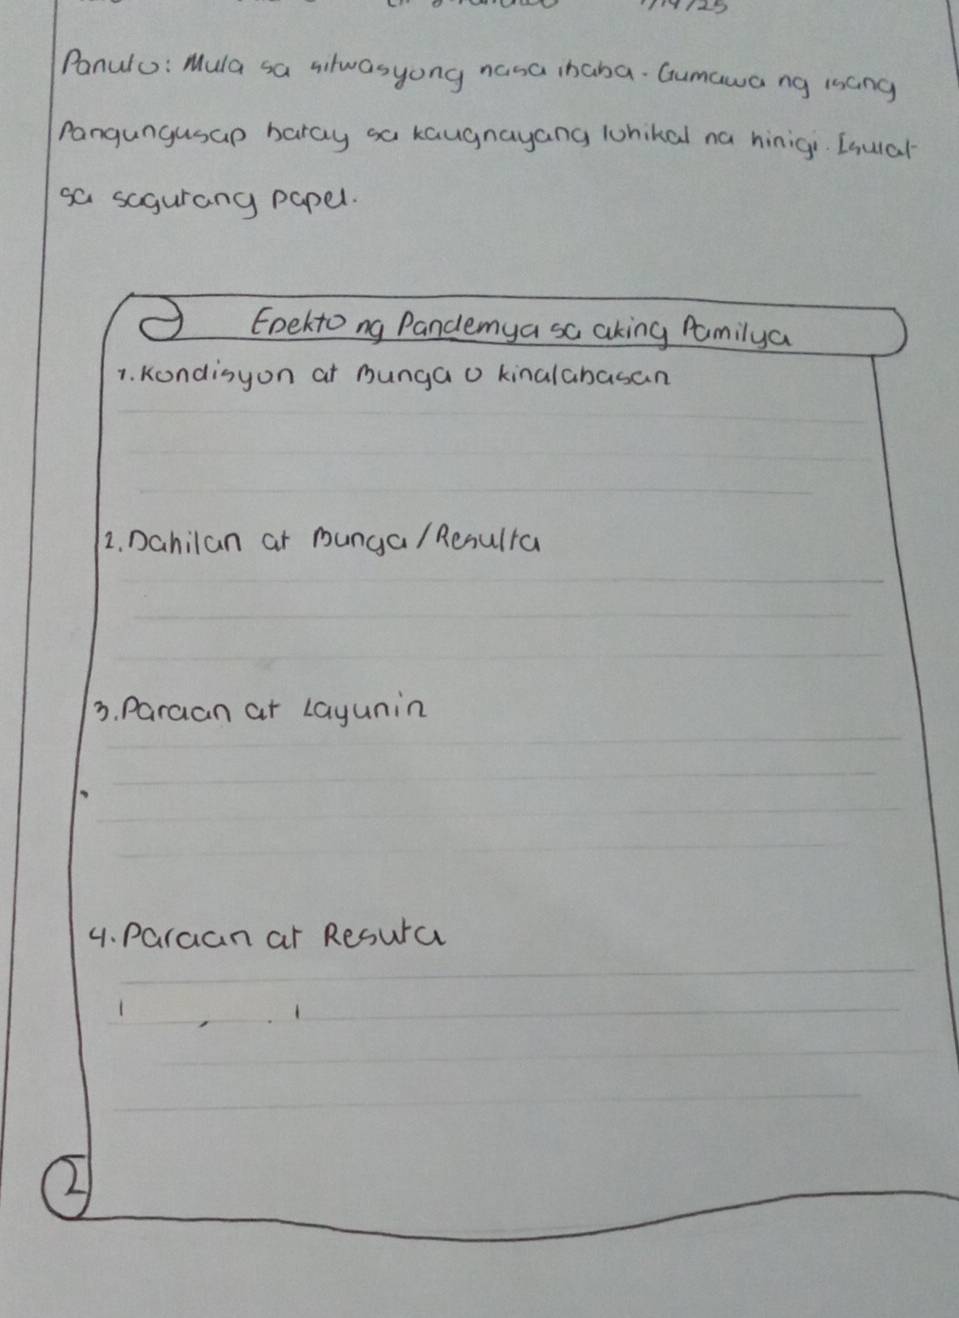 1/14/25
Panuto: Mula sa sitwasyong nasa ibaba. Gumawa ng isang
Pangungusap batay sa kaugnayang lohikal na hinigi. Isulat
sa sagutang papel.
Epekto ng Pandemya sa aking Pamilya
1. Kondisyon at Bunga o kinalabasan
2. Dahilan at Bunga/Resulta
3. Paraan at Layunin
4. Paraan at Resuta
2